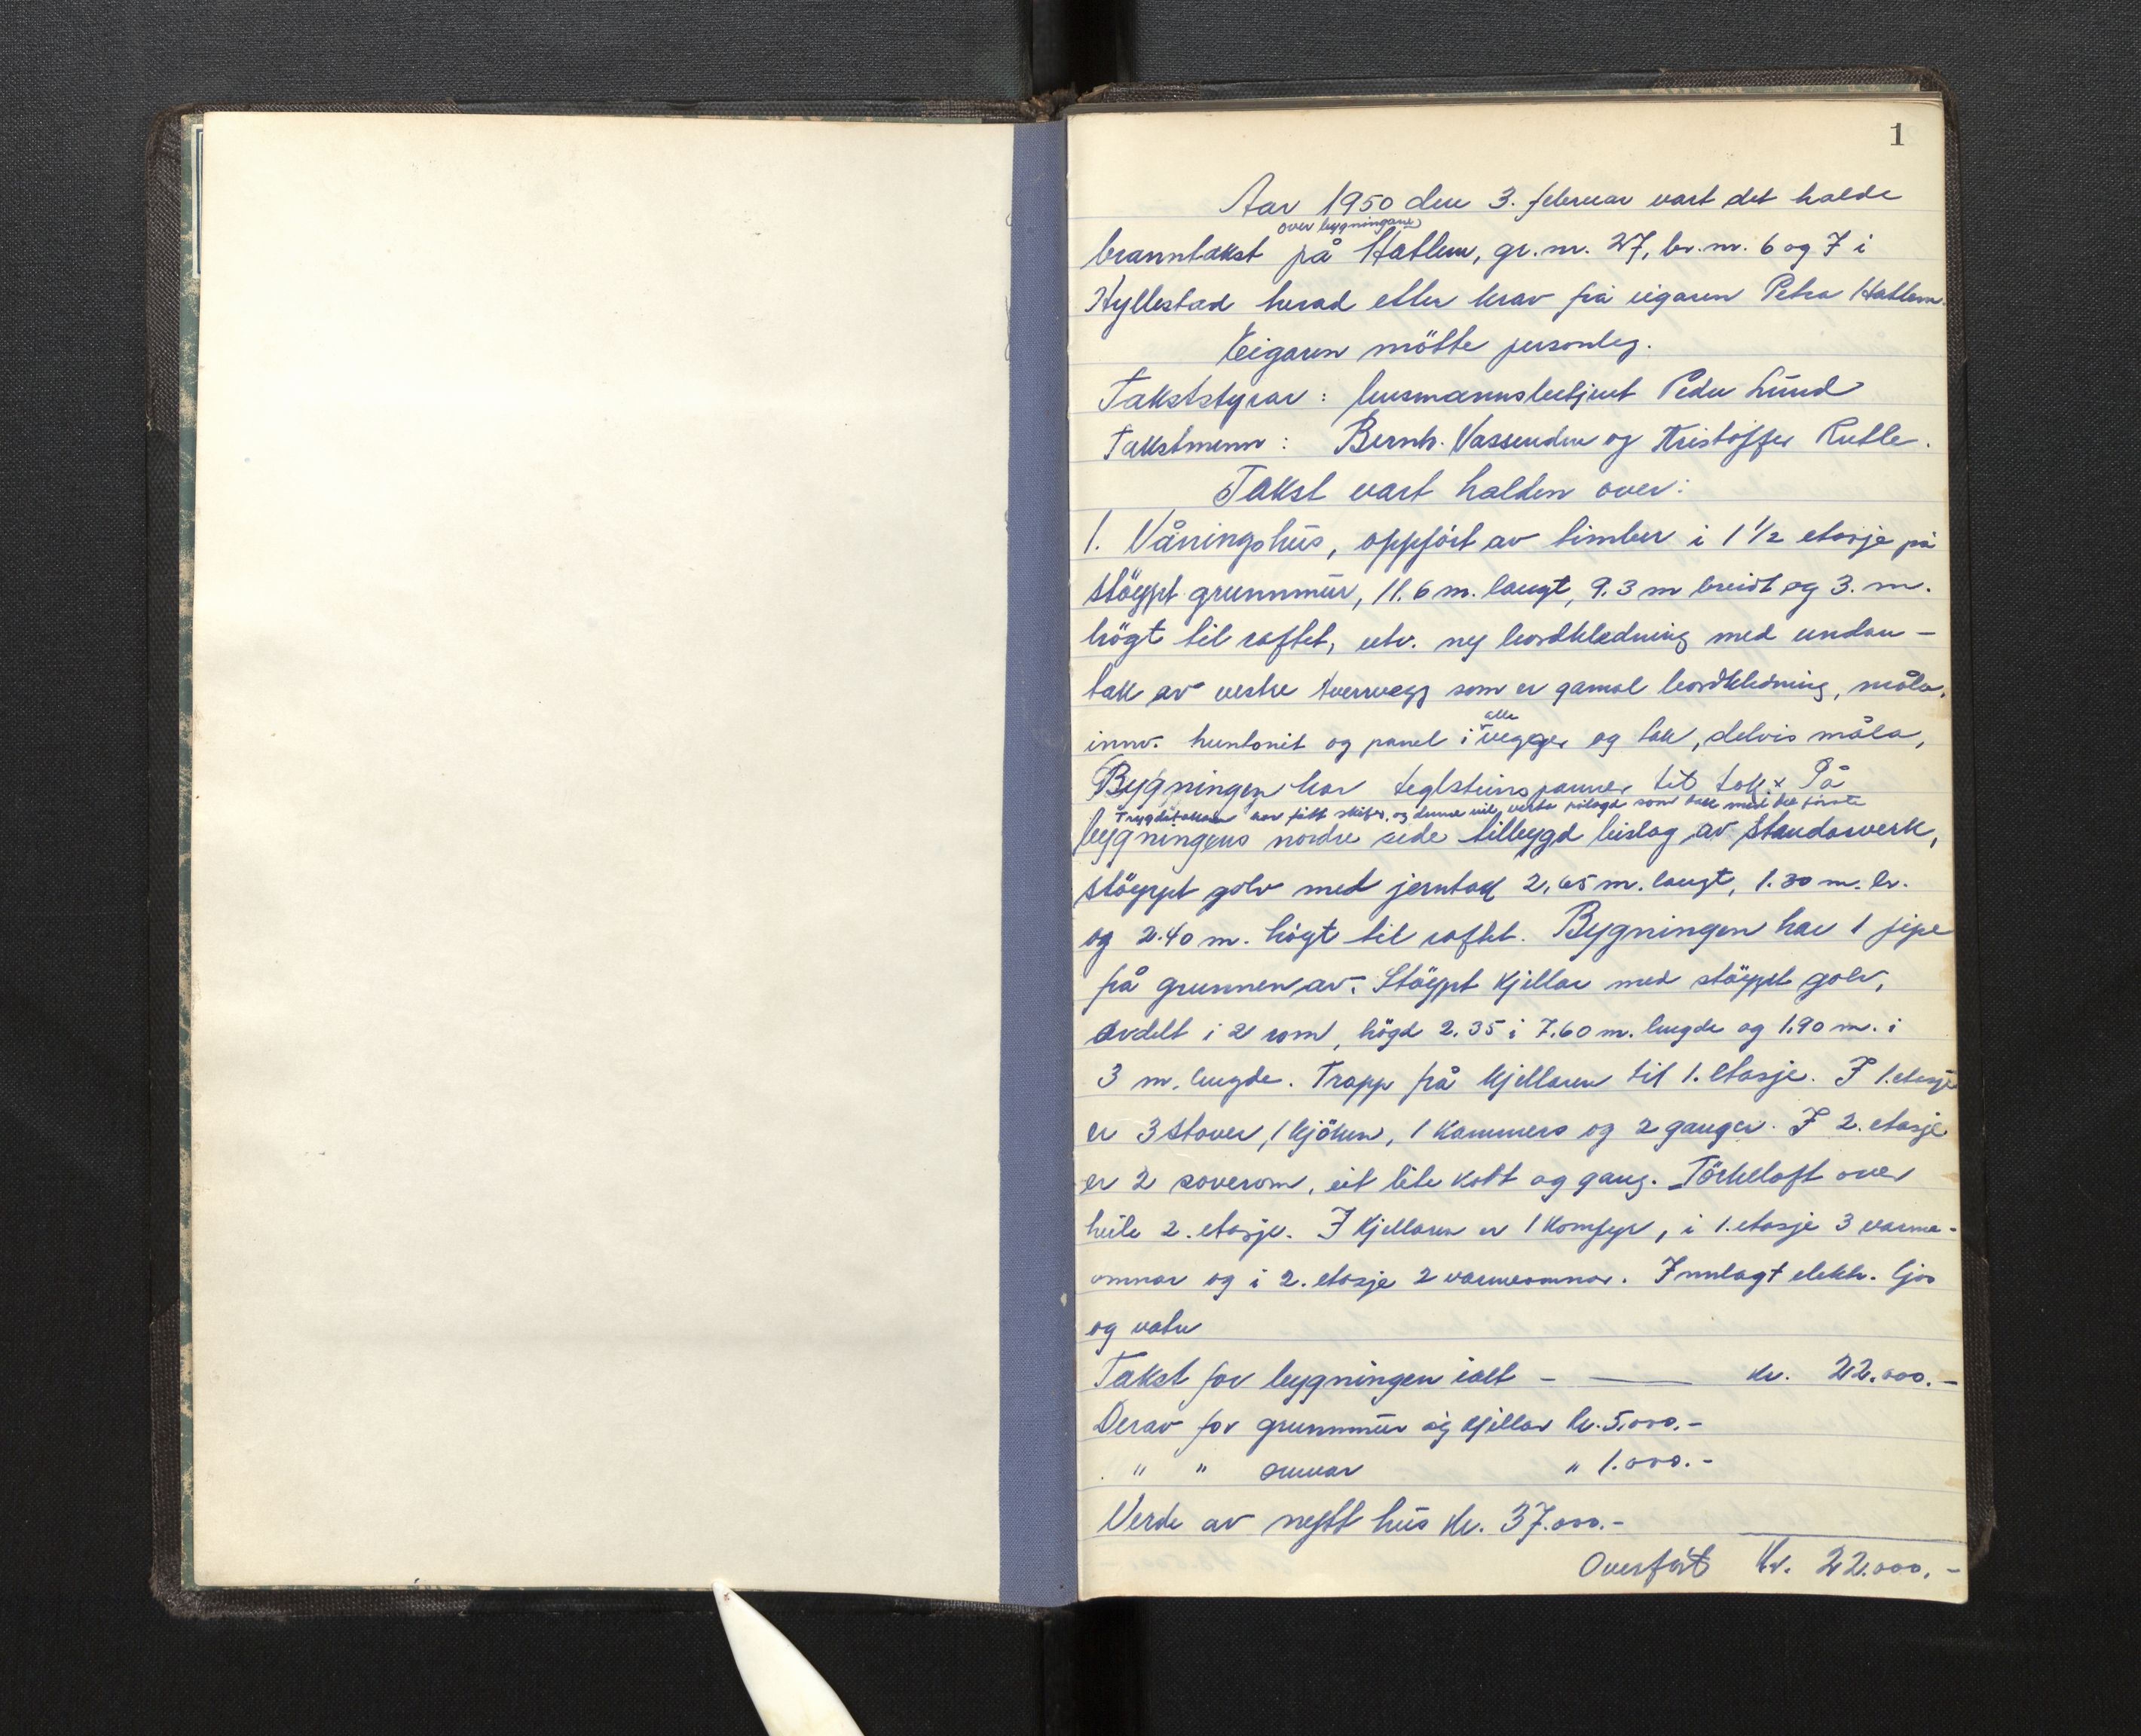 1
Aar 1950 den 3. februar vart det halde
over bygningane
branntakst på Hatlem, gr. nr. 27, br. nr. 6 og 7 i
Hyllestad herad etter krav frå eigaren Petra Hatlem.
Eigaren mötte personleg.
Takststyrar: lensmannsbetjent Peder Lund
Takstmenn: Bernh. Vassenden og Kristoffer Rutle.
Takst vart halden over:
1. Våningshus, oppfört av timber i 1 1/2 etasje på
stöypt grunnmur, 11.6 m. langt, 9.3 m breidt og 3. m.
högt til raftet, utv. ny bordkledning med undan-
tak av vestre tverrvegg som er gamal bordkledning, måla,
alle
innv. huntonit og panel i vegger og tak, delvis måla,
Bygningen har teglsteinspanner til tak x På
har fått skifer, og denne vil verta pålagd som tak med det första
bygningens nordre side tilbygd bislag av standarverk,
stöypt golv med jerntak 2,65 m. langt, 1.30 m. br.
og 2.40 m. högt til raftet. Bygningen har 1 pipe
frå grunnen av. Stöypt kjellar med stöypt golv,
avdelt i 2 rom, högd 2.35 i 7.60 m. lengde og 1.90 m. i
3 m. lengde. Trapp frå kjellaren til 1. etasje. I 1. etasje
er 3 stover, 1 kjöken, 1 kammers og 2 ganger. I 2. etasje
er 2 soverom, eit lite kott og gang. Törkeloft over
heile 2. etasje. I kjellaren er 1 komfyr, i 1. etasje 3 varme-
omnar og i 2. etasje 2 varmeomnar. Innlagt elektr. ljos
og vatn
Takst for bygningen ialt - — kr. 22.000.-
Derav for grunnmur og kjellar kr. 5.000.-
" " omnar " 1.000.-
Verde av nytt hus kr. 37.000.-
Overfört Kr. 22.000.-